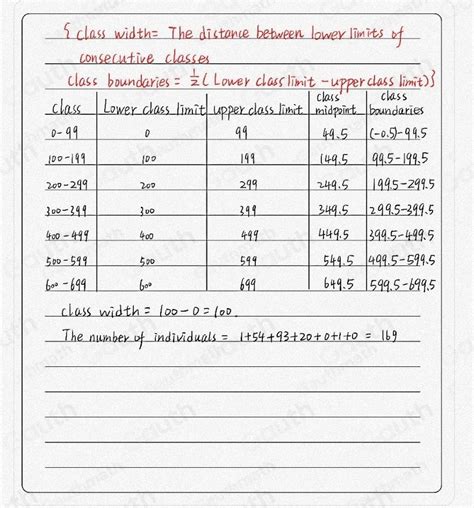 { class width= The distance between lower limits of
consecutive classes
class boundaries = 1/2 ( Lower class limit - upper class limit)}
class Lower class limit upper class limit class midpoint class boundaries
0-99 0 99 49.5 (-0.5)-99.5
100-199 100 199 149.5 99.5-199.5
200-299 200 299 249.5 199.5-299.5
300-399 300 399 349.5 299.5-399.5
400-499 400 499 449.5 399.5-499.5
500-599 500 599 549.5 499.5-599.5
600-699 600 699 649.5 599.5-699.5
class width = 100-0=100.
The number of individuals = 1+54+93+20+0+1+0 = 169